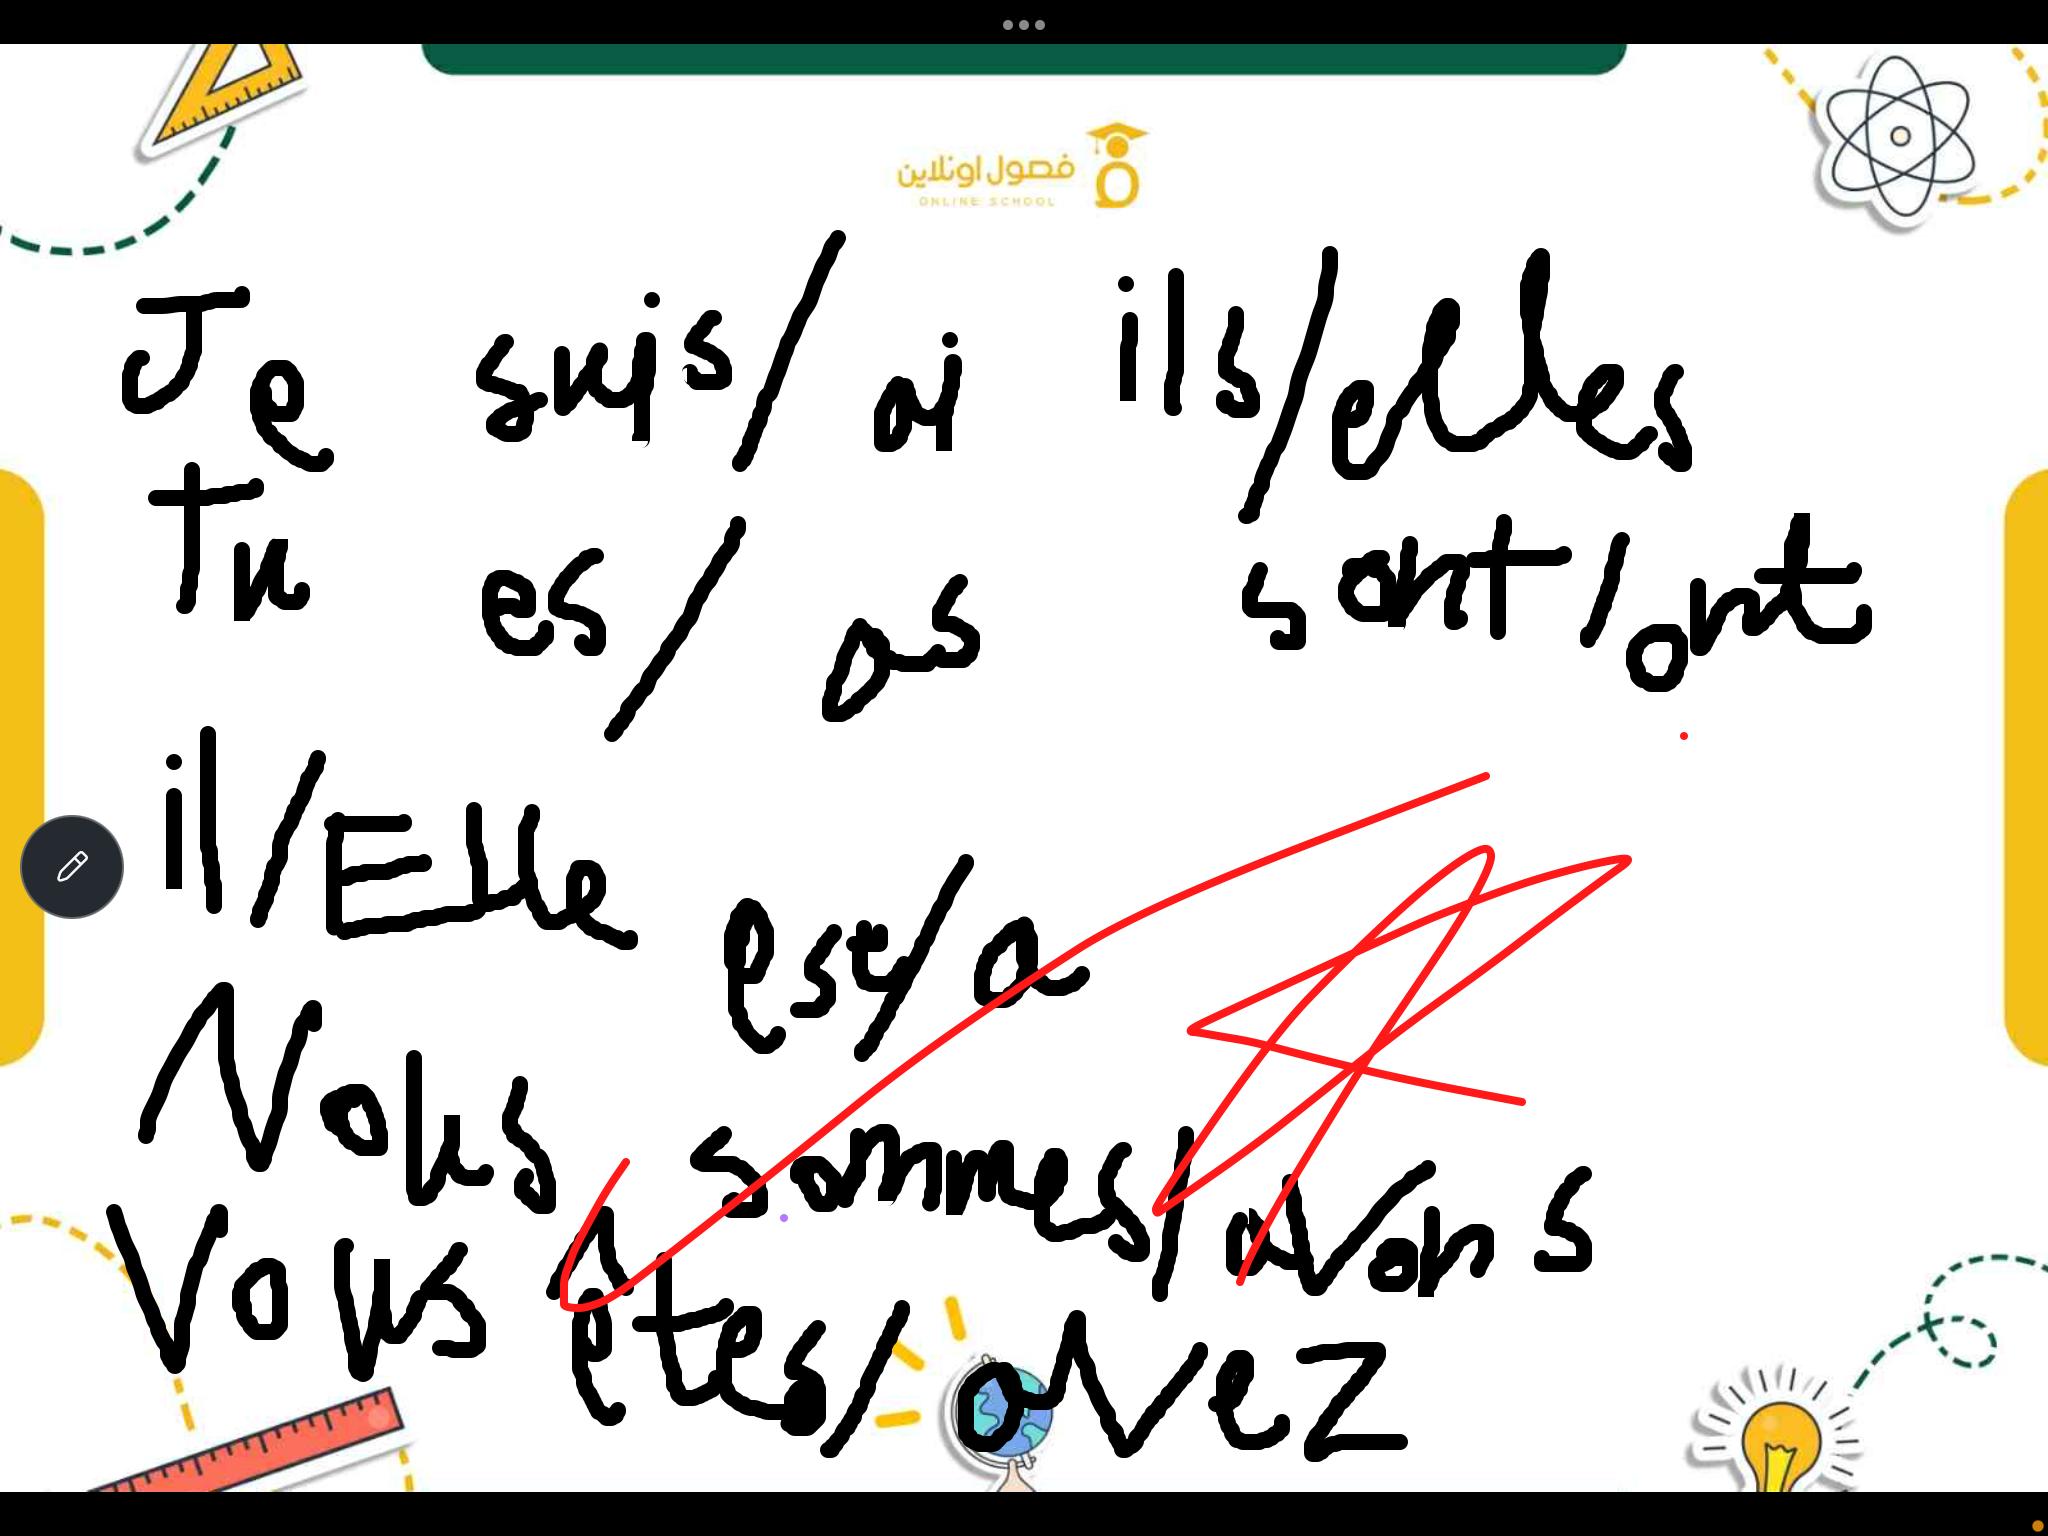 فصول اونلاين
ONLINE SCHOOL
Je suis/ ai
Tu es/ as
il/Elle est/a
Nous sommes/avons
Vous êtes/avez
ils/elles
sont/ont